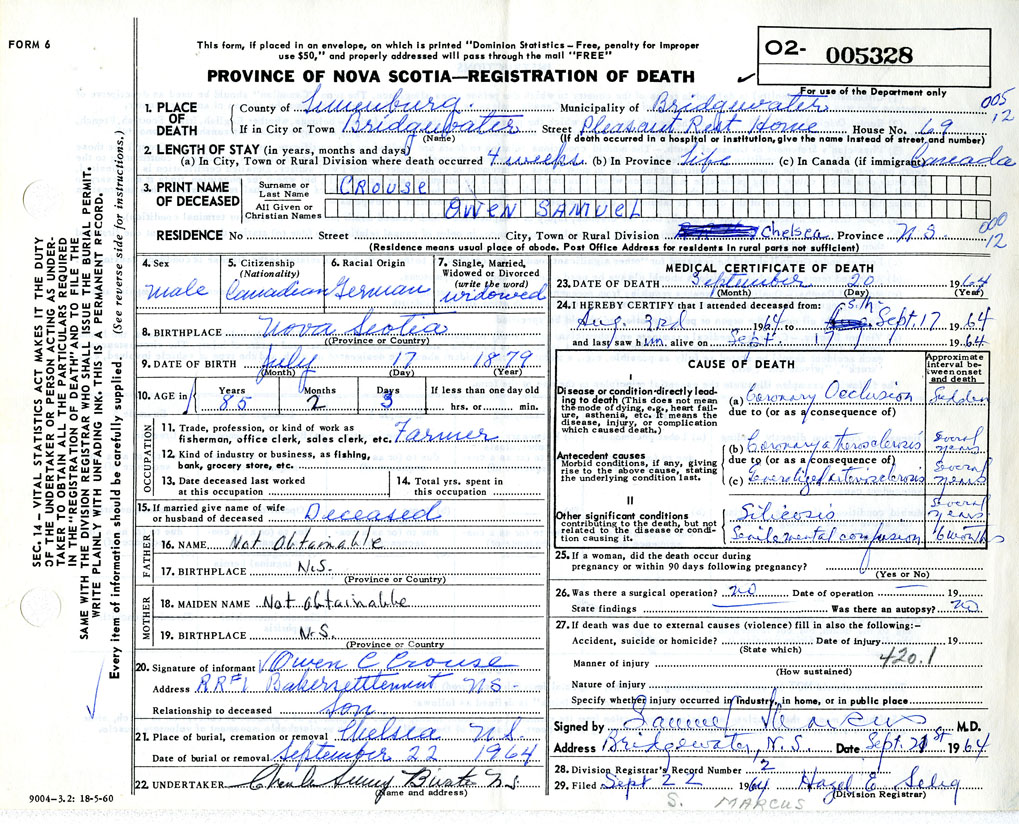 FORM 6
This form, if placed in an envelope, on which is printed "Dominion Statistics – Free, penalty for improper
use $50," and properly addressed will pass through the mail "FREE"
PROVINCE OF NOVA SCOTIA—REGISTRATION OF DEATH
02- 005328
For use of the Department only
005
12
1. PLACE OF DEATH
County of Lunenburg Municipality of Bridgewater
If in City or Town Bridgewater Street Pleasant Rest Home House No. 69
(Name) (If death occurred in a hospital or institution, give the name instead of street and number)
2. LENGTH OF STAY (in years, months and days)
(a) In City, Town or Rural Division where death occurred 4 weeks (b) In Province Life (c) In Canada (if immigrant) Canada
3. PRINT NAME OF DECEASED
Surname or Last Name CROUSE
All Given or Christian Names OWEN SAMUEL
RESIDENCE No Street City, Town or Rural Division Chelsea Province N.S.
000
12
(Residence means usual place of abode. Post Office Address for residents in rural parts not sufficient)
4. Sex male
5. Citizenship (Nationality) Canadian
6. Racial Origin German
7. Single, Married, Widowed or Divorced (write the word) widowed
8. BIRTHPLACE Nova Scotia
(Province or Country)
9. DATE OF BIRTH July 17 1879
(Month) (Day) (Year)
10. AGE in Years 85 Months 2 Days 3 If less than one day old
hrs. or min.
OCCUPATION
11. Trade, profession, or kind of work as
fisherman, office clerk, sales clerk, etc. Farmer
12. Kind of industry or business, as fishing,
bank, grocery store, etc.
13. Date deceased last worked
at this occupation
14. Total yrs. spent in
this occupation
15. If married give name of wife
or husband of deceased Deceased
FATHER
16. NAME Not Obtainable
17. BIRTHPLACE N.S.
(Province or Country)
MOTHER
18. MAIDEN NAME Not obtainable
19. BIRTHPLACE N.S.
(Province or Country
20. Signature of informant Owen C Crouse
Address RR#1 Bakersettlement NS-
Relationship to deceased Son
21. Place of burial, cremation or removal Chelsea N.S.
Date of burial or removal September 22 1964
22. UNDERTAKER N.S
(Name and address)
9004–3.2: 18-5-60
MEDICAL CERTIFICATE OF DEATH
23. DATE OF DEATH September 20 1964
(Month) (Day) (Year)
24. I HEREBY CERTIFY that I attended deceased from:
Aug. 3rd 1964 to Sept. 17 1964
and last saw him alive on Sept 17 1964
CAUSE OF DEATH
Approximate interval between onset and death
I
Disease or condition directly leading to death (This does not mean the mode of dying, e.g., heart failure, asthenia, etc. It means the disease, injury, or complication which caused death.)
(a) Coronary Occlusion Sudden
due to (or as a consequence of)
Antecedent causes
Morbid conditions, if any, giving rise to the above cause, stating the underlying condition last.
(b) Coronary atherosclerosis Several years
due to (or as a consequence of)
(c) arteriosclerosis Several years
II
Other significant conditions
contributing to the death, but not related to the disease or condition causing it.
Silicosis Several years
Senile mental confusion 6 months
25. If a woman, did the death occur during
pregnancy or within 90 days following pregnancy?
(Yes or No)
26. Was there a surgical operation? no Date of operation – 19
State findings Was there an autopsy? no
27. If death was due to external causes (violence) fill in also the following:–
Accident, suicide or homicide? Date of injury 19
(State which)
Manner of injury 420.1
(How sustained)
Nature of injury
Specify whether injury occurred in industry, in home, or in public place
Signed by Samuel Marcus M.D.
Address Bridgewater, N.S. Date Sept. 21st 1964
28. Division Registrar's Record Number 2
29. Filed Sept 22 1964 Hazel E Selig
(Division Registrar)
S. MARCUS
SEC. 14 – VITAL STATISTICS ACT MAKES IT THE DUTY
OF THE UNDERTAKER OR PERSON ACTING AS UNDER-
TAKER TO OBTAIN ALL THE PARTICULARS REQUIRED
IN THE "REGISTRATION OF DEATH" AND TO FILE THE
SAME WITH THE DIVISION REGISTRAR WHO SHALL ISSUE THE BURIAL PERMIT.
WRITE PLAINLY WITH UNFADING INK. THIS IS A PERMANENT RECORD.
Every item of information should be carefully supplied. (See reverse side for instructions.)